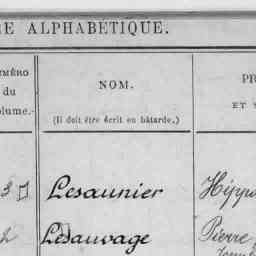 E ALPHABÉTIQUE.
MÉRO
du
olume.
NOM.
(Il doit être écrit en bâtarde.)
PR
ET
3 Lesaunier Hippo
Lesauvage Pierre